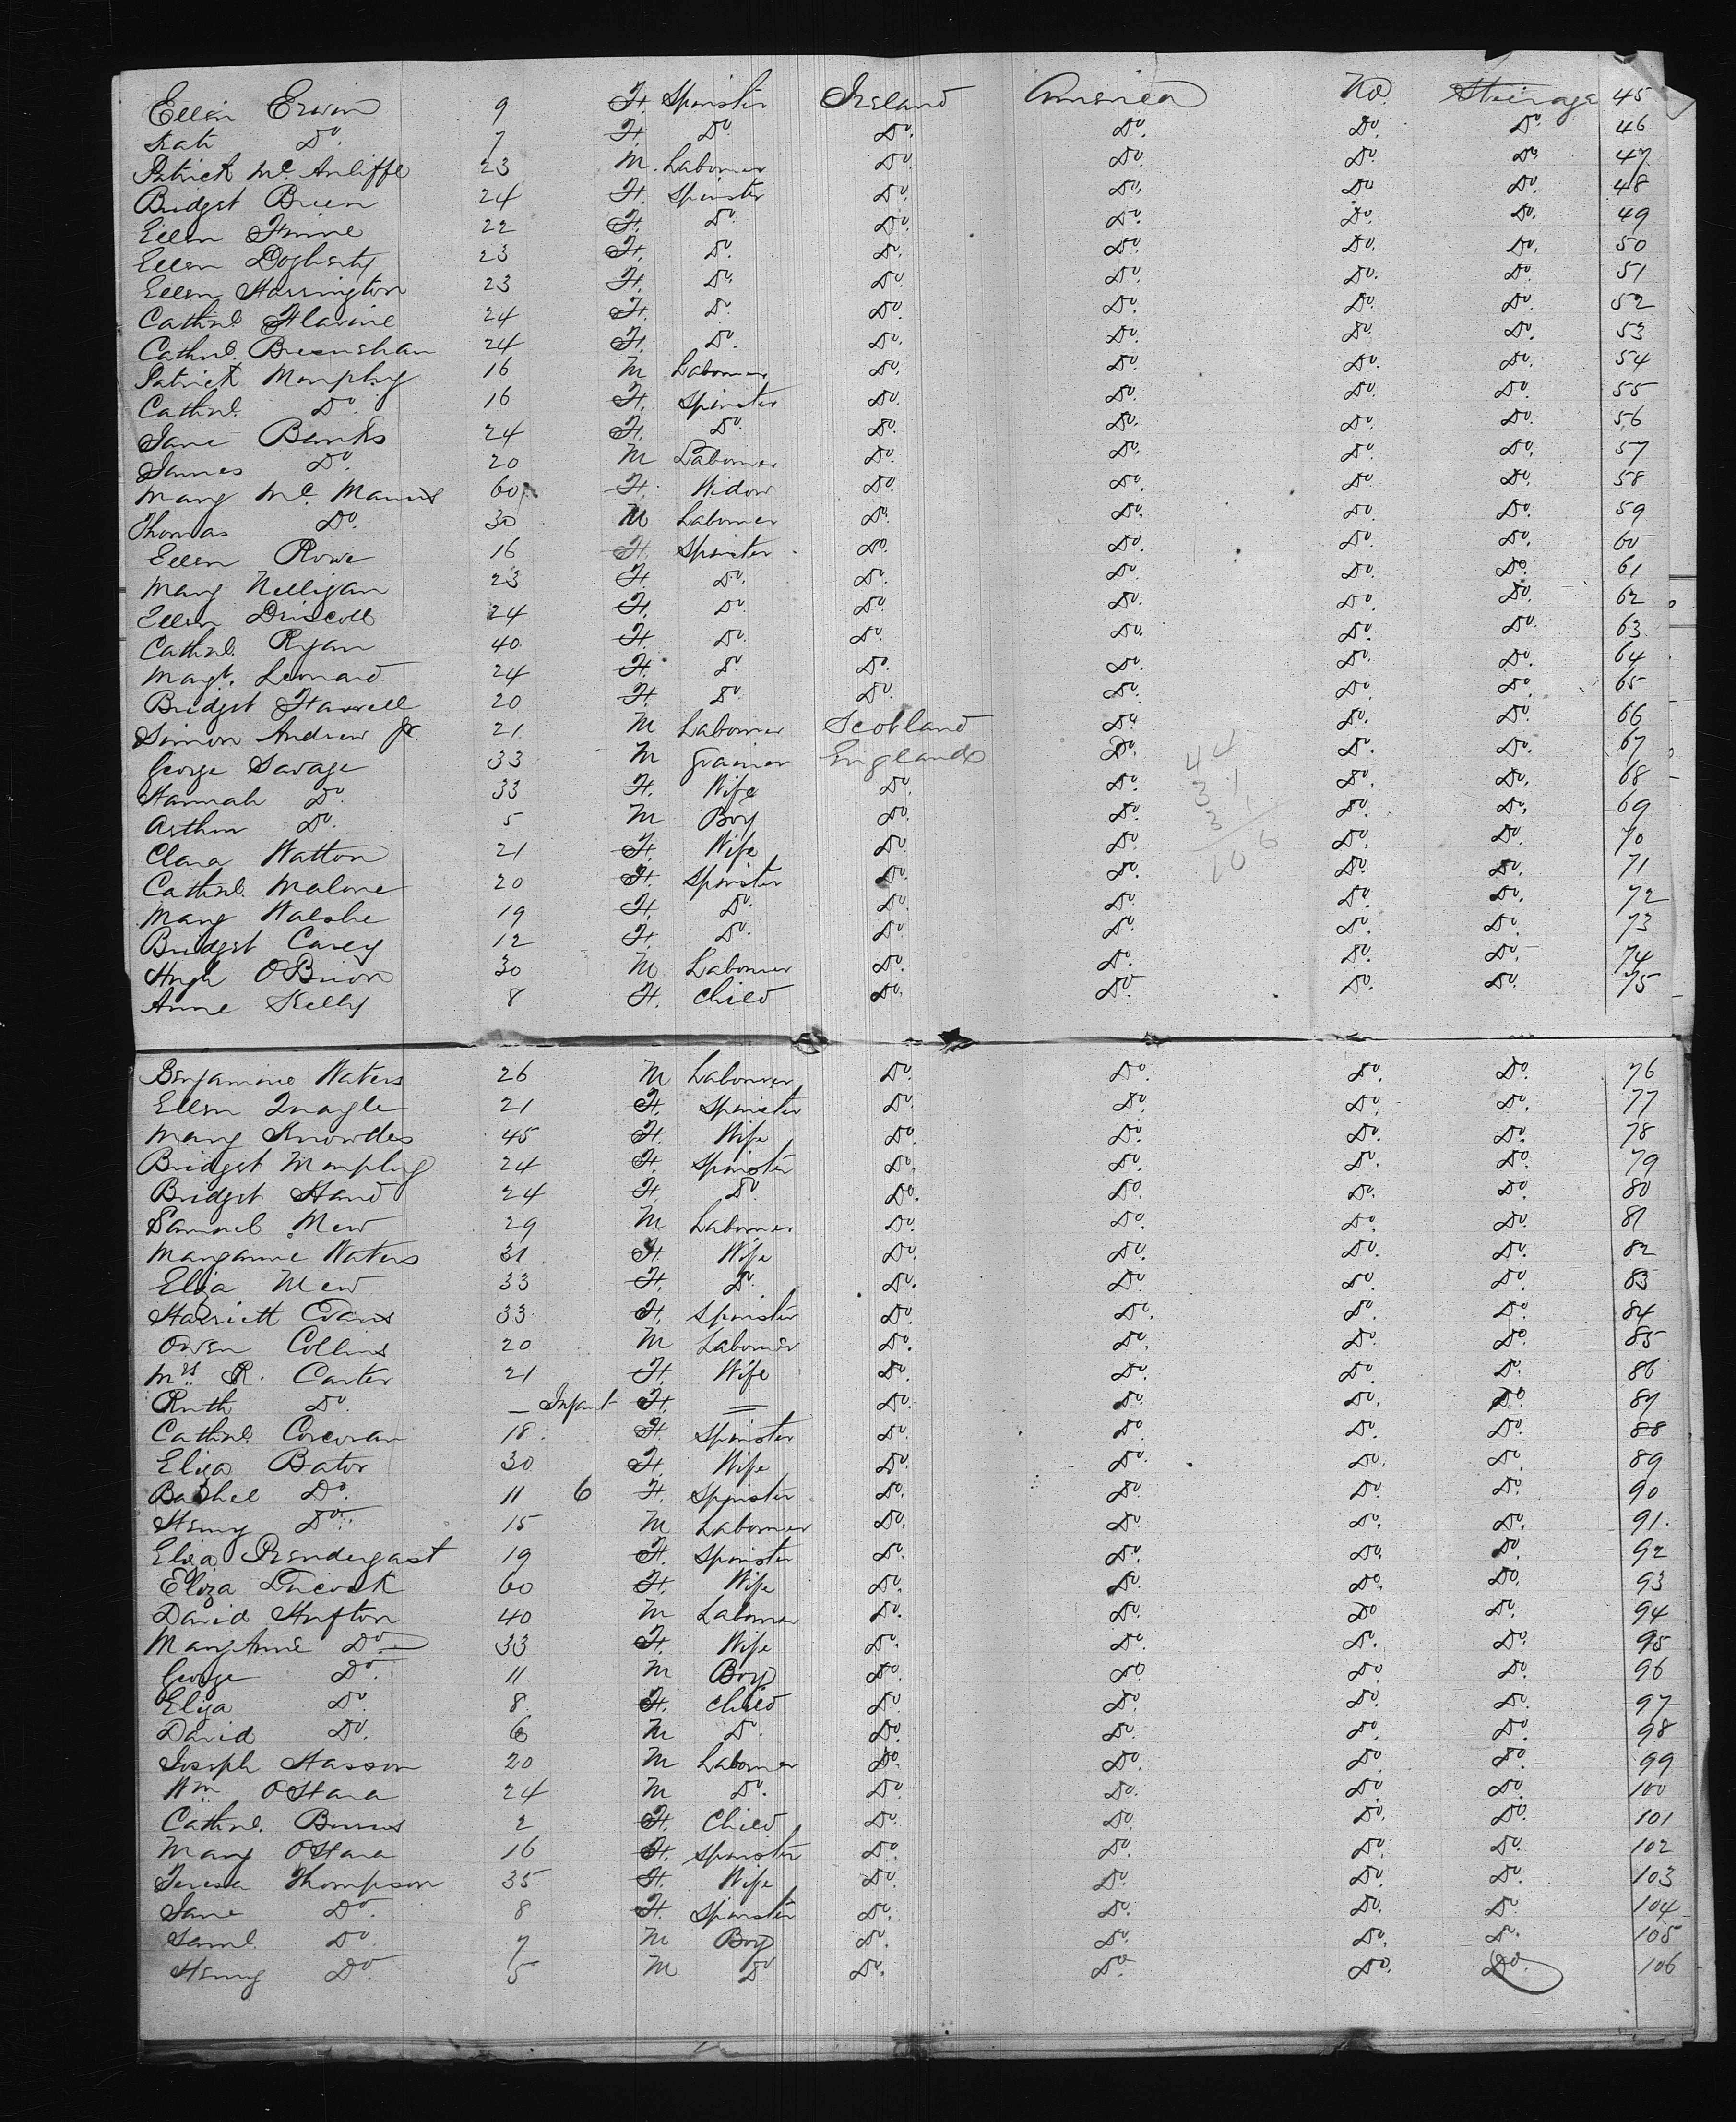 Ellen Erwin 9 F. Spinster Ireland America No. Steirage 45
Kate Do. 7 F. Do. Do. Do. Do. Do. 46
Patrick Mc. Auliffe 23 M. Labourer Do. Do. Do. Do. 47
Bridget Brien 24 F. Spinster Do. Do. Do. Do. 48
Ellen 22 F. Do. Do. Do. Do. Do. 49
Ellen Dogherty 23 F. Do. Do. Do. Do. Do. 50
Ellen Harrington 23 F. Do. Do. Do. Do. Do. 51
Cathne. 24 F. Do. Do. Do. Do. Do. 52
Cathne. Bresnehan 24 F. Do. Do. Do. Do. Do. 53
Patrick Murphy 16 M Labourer Do. Do. Do. Do. 54
Cathne. Do. 16 F. Spinster Do. Do. Do. Do. 55
Jane Banks 24 F. Do. Do. Do. Do. Do. 56
James Do. 20 M Labourer Do. Do. Do. Do. 57
Mary Mc. Manus 60 F. Widow Do. Do. Do. Do. 58
Thomas Do. 30 M Labourer Do. Do. Do. Do. 59
Ellen Rowe 16 F. Spinster Do. Do. Do. Do. 60
Mary Nelligan 23 F. Do. Do. Do. Do. Do. 61
Ellen Driscoll 24 F. Do. Do. Do. Do. Do. 62
Cathne. Ryan 40 F. Do. Do. Do. Do. Do. 63
Margt. Leonard 24 F. Do. Do. Do. Do. Do. 64
Bridget Farrell 20 F. Do. Do. Do. Do. Do. 65
Simon Andrew Jr. 21 M Labourer Scotland Do. Do. Do. 66
George Savage 33 M Grainer England Do. Do. Do. 67
Hannah Do. 33 F. Wife Do. Do. Do. Do. 68
Arthur Do. 5 M Boy Do. Do. Do. Do. 69
Clara Watton 21 F. Wife Do. Do. Do. Do. 70
Cathne. Malone 20 F. Spinster Do. Do. Do. Do. 71
Mary Walshe 19 F. Do. Do. Do. Do. Do. 72
Bridget Carey 12 F. Do. Do. Do. Do. Do. 73
Hugh O'Brion 30 M Labourer Do. Do. Do. Do. 74
Anne Skelly 8 F. Child Do. Do. Do. Do. 75
44
31
31
106
Benjamine Waters 26 M Labourer Do. Do. Do. Do. 76
Ellen 21 F. Spinster Do. Do. Do. Do. 77
Mary Knowles 45 F. Wife Do. Do. Do. Do. 78
Bridget Murphy 24 F. Spinster Do. Do. Do. Do. 79
Bridget Hand 24 F. Do. Do. Do. Do. Do. 80
Samuel Mew 29 M Labourer Do. Do. Do. Do. 81
Maryanne Waters 31 F. Wife Do. Do. Do. Do. 82
Eliza Mew 33 F. Do. Do. Do. Do. Do. 83
Harriett Evans 33 F. Spinster Do. Do. Do. Do. 84
Owen Collins 20 M Labourer Do. Do. Do. Do. 85
Mrs. R. Carter 21 F. Wife Do. Do. Do. Do. 86
Ruth Do. — Infant F. = Do. Do. Do. Do. 87
Cathne. Corcoran 18 F. Spinster Do. Do. Do. Do. 88
Eliza Bator 30 F. Wife Do. Do. Do. Do. 89
Do. 11 6 F. Spinster Do. Do. Do. Do. 90
Henry Do. 15 M Labourer Do. Do. Do. Do. 91
Eliza Prendergast 19 F. Spinster Do. Do. Do. Do. 92
Eliza 60 F. Wife Do. Do. Do. Do. 93
David Hufton 40 M Labourer Do. Do. Do. Do. 94
MaryAnne Do. 33 F. Wife Do. Do. Do. Do. 95
George Do. 11 M Boy Do. Do. Do. Do. 96
Eliza Do. 8 F. Child Do. Do. Do. Do. 97
David Do. 6 M Do. Do. Do. Do. Do. 98
Joseph Hasson 20 M Labourer Do. Do. Do. Do. 99
Wm. O'Hara 24 M Do. Do. Do. Do. Do. 100
Cathne. Burns 2 F. Child Do. Do. Do. Do. 101
Mary O'Hara 16 F. Spinster Do. Do. Do. Do. 102
Teresa Thompson 35 F. Wife Do. Do. Do. Do. 103
Jane Do. 8 F. Spinster Do. Do. Do. Do. 104
Saml. Do. 7 M Boy Do. Do. Do. Do. 105
Henry Do. 5 M Do Do. Do. Do. Do. 106